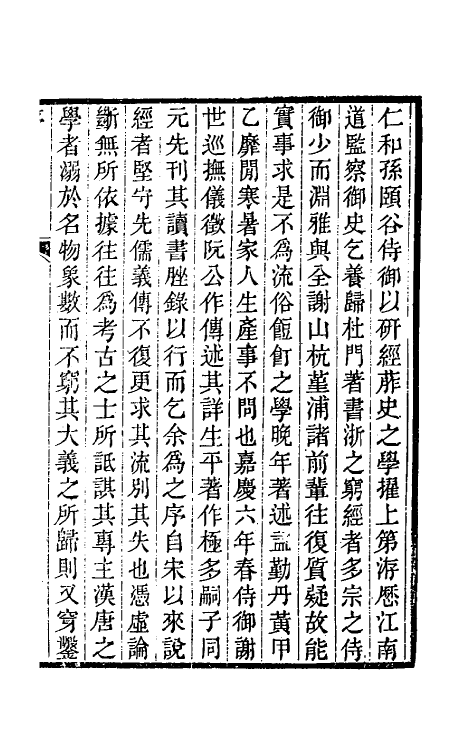 仁和孫頤谷侍御以研經耽史之學擢上第洊歷江南
道監察御史乞養歸杜門著書浙之窮經者多宗之侍
御少而淵雅與全謝山杭堇浦諸前輩往復質疑故能
實事求是不爲流俗飣餖之學晚年著述益勤丹黃甲
乙靡閒寒暑家人生產事不問也嘉慶六年春侍御謝
世巡撫儀徵阮公作傳述其詳生平著作極多嗣子同
元先刊其讀書脞錄以行而乞余為之序自宋以來說
經者堅守先儒義傳不復更求其流別其失也憑虛論
斷無所依據往往爲考古之士所詆諆其專主漢唐之
學者溺於名物象數而不窮其大義之所歸則又穿鑿